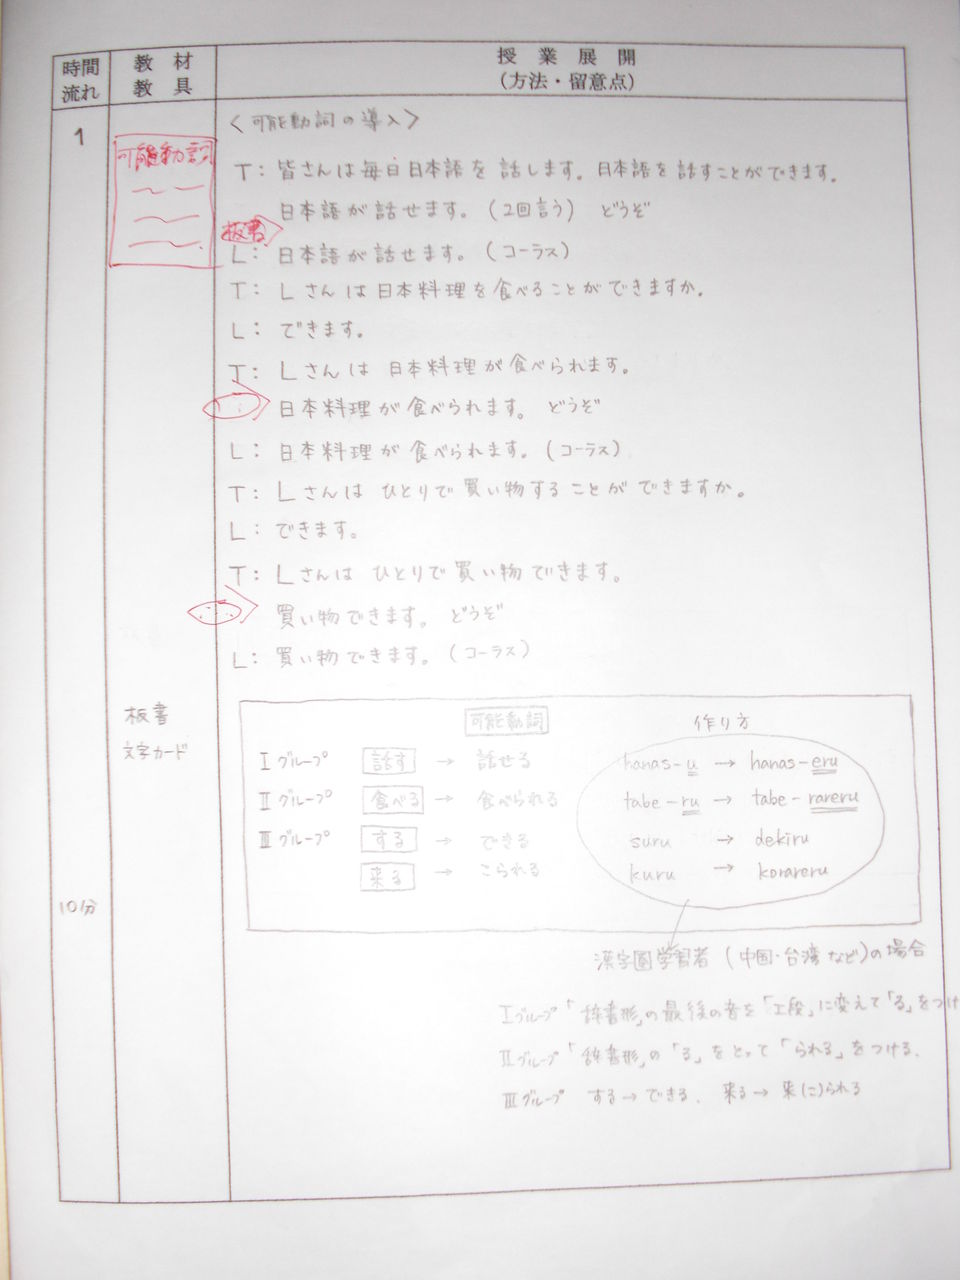 時間 流れ
教材 教具
授業展開
(方法・留意点)
1
〈可能動詞の導入〉
可能動詞
T: 皆さんは毎日日本語を話します。日本語を話すことができます。
日本語が話せます。(2回言う) どうぞ
板書
L: 日本語が話せます。(コーラス)
T: Lさんは日本料理を食べることができますか。
L: できます。
T: Lさんは日本料理が食べられます。
日本料理が食べられます。どうぞ
L: 日本料理が食べられます。(コーラス)
T: Lさんはひとりで買い物することができますか。
L: できます。
T: Lさんはひとりで買い物できます。
買い物できます。どうぞ
L: 買い物できます。(コーラス)
板書
文字カード
可能動詞 作り方
Ⅰグループ 話す → 話せる hanas-u → hanas-eru
Ⅱグループ 食べる → 食べられる tabe-ru → tabe-rareru
Ⅲグループ する → できる suru → dekiru
来る → こられる kuru → korareru
10分
漢字圏学習者(中国・台湾など)の場合
Ⅰグループ「辞書形」の最後の音を「エ段」に変えて「る」をつけ
Ⅱグループ「辞書形」の「る」をとって「られる」をつける.
Ⅲグループ する→できる. 来る→来(こ)られる